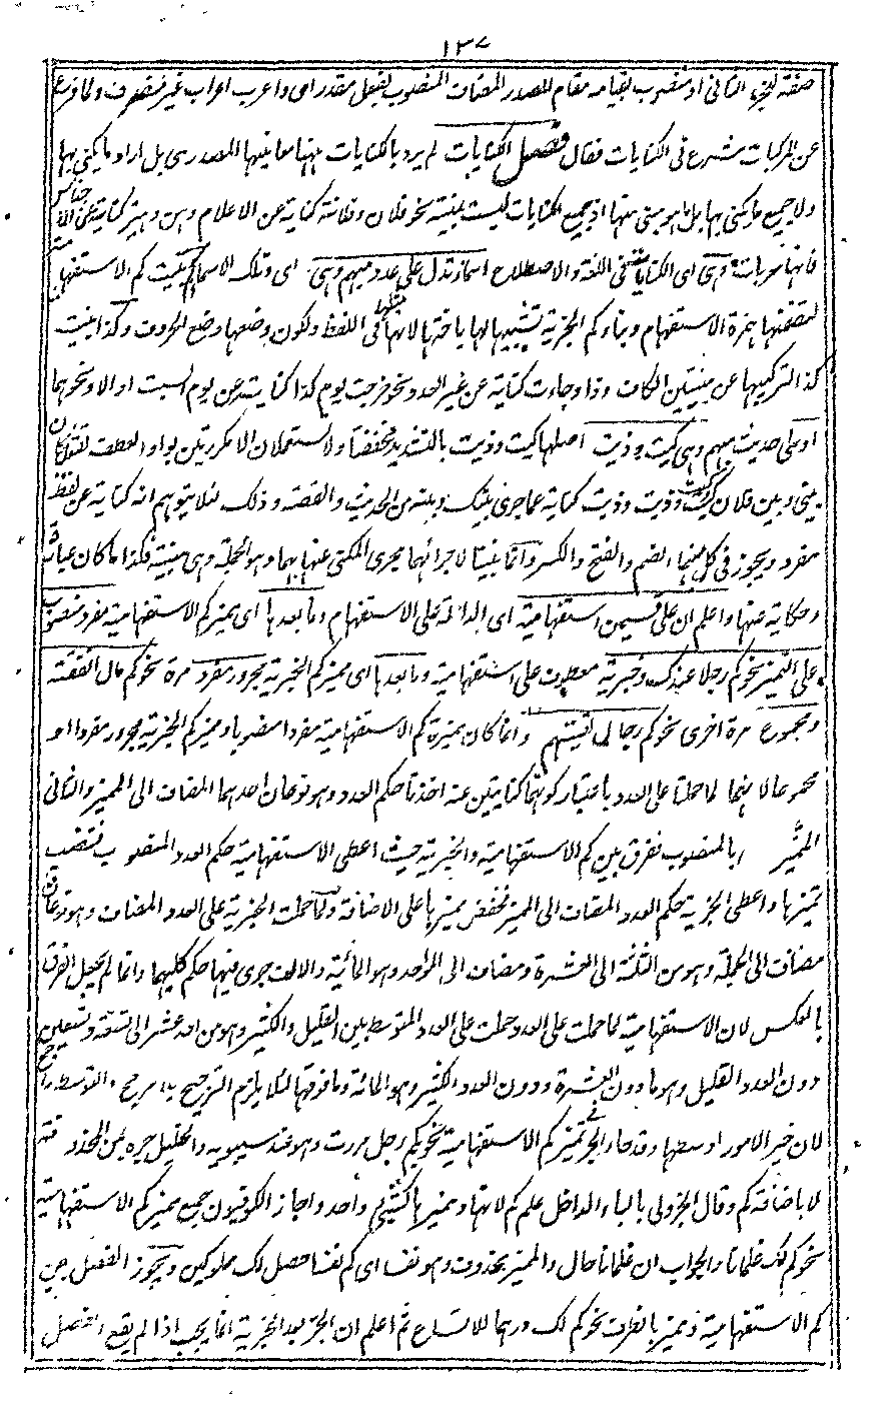 ١٣٧
صفة للجزء الثانى او منصوب لقيامه مقام المصدر المضاف المنصوب بفعل مقدر اى واعرب اعراب غير منصرف ولما فرغ
عن المركبات شرع فى الكنايات فقال فصل الكنايات لم يرد بالكنايات ههنا معانيها المصدرى بل اراد ما يكنى بها
ولا جميع ما يكنى بها بل ما هو مبنى منها اذ جميع الكنايات ليست بمبنية نحو فلان وفلانة كناية عن الاعلام وهن وهنة كناية عن الاجناس
فانها معربات وهى اى الكنايات فى اللغة والاصطلاح اسماء تدل على عدد مبهم وهى اى وتلك الاسماء كم بنيت كم الاستفهامية
لتضمنها همزة الاستفهام وبناء كم الخبرية تشبيها لها باختها لانها مثلها فى اللفظ ولكون وضعها وضع الحروف وكذا بنيت
كذا لتركيبها عن مبنيين الكاف وذا وجاءت كناية عن غير العدد نحو خرجت يوم كذا كناية عن يوم السبت او الاحد ونحوهما
او على حديث مبهم وهى كيت وذيت اصلهما كيت وذيت بالتشديد مخففتا ولا تستعملان الا مكررتين بواو العطف تقول كان
بينى وبين فلان كيت وكيت وذيت وذيت كناية عما جرى بينك وبينه من الحديث والقصة وذلك لئلا يتوهم انه كناية عن لفظ
مفرد ويجوز فى كل منهما الضم والفتح والكسر وانما بنيتا لاجرائهما مجرى المكنى عنها بهما وهو الجملة وهى مبنية فكذا ما كان عبارة
وحكاية عنها واعلم ان على قسمين استفهامية اى الدالة على الاستفهام وما بعدها اى مميز كم الاستفهامية مفرد منصوب
على التمييز نحو كم رجلا عندك وخبرية معطوف على استفهامية وما بعدها اى مميز كم الخبرية مجرور مفرد مرة نحو كم مال انفقته
ومجموع مرة اخرى نحو كم رجال لقيتهم وانما كان مميزة كم الاستفهامية مفردا منصوبا ومميز كم الخبرية مجرور مفردا او
مجموعا لانهما لما حملتا على العدد باعتبار كونهما كنايتين عنه اخذتا حكم العدد وهو نوعان احدهما المضاف الى المميز والثانى
المميز بالمنصوب ففرق بين كم الاستفهامية والخبرية حيث اعطى الاستفهامية حكم العدد المنصوب فتنصب
تميزها واعطى الخبرية حكم العدد المضاف الى المميز فخفض مميزها على الاضافة ولما حملت الخبرية على العدد المضاف وهو نوعان
مضاف الى الجملة وهو من الثلثة الى العشرة ومضاف الى الواحد وهو المائية والالف جرى فيها حكم كليهما وانما لم يجعل الفرق
بالعكس لان الاستفهامية لما حملت على العدد حملت على العدد المتوسط بين القليل والكثير وهو من احد عشر الى تسعة وتسعين
دون العدد القليل وهو ما دون العشرة ودون العدد الكثير وهو المائة وما فوقها لئلا يلزم الترجيح بلا مرجح والتوسط راجح
لان خير الامور اوسطها وقد جاء الجر فى تميز كم الاستفهامية نحو بكم رجل مررت وهو عند سيبويه والخليل جره بمن المحذوفة
لا باضافة كم وقال الجزولى بالباء الداخل على كم لانها ومميزها كشئ واحد واجاز الكوفيون جمع مميز كم الاستفهامية
نحو كم لك غلمانا والجواب ان غلمانا حال والمميز محذوف وهو نفسا اى كم نفسا حصل لك مملوكين ويجوز الفصل بين
كم الاستفهامية ومميزها بالظرف نحو كم لك درهما للاتساع ثم اعلم ان الجر بعد الخبرية انما يجب اذا لم يقع الفصل